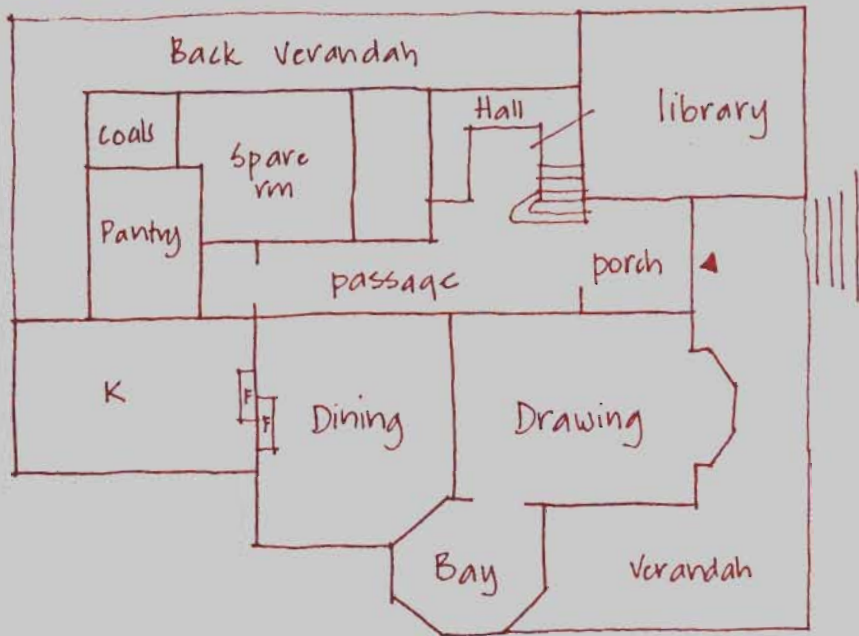 Back Verandah
Hall
library
Coals
Spare
rm
Pantry
passage
porch
K
F
F
Dining
Drawing
Bay
Verandah